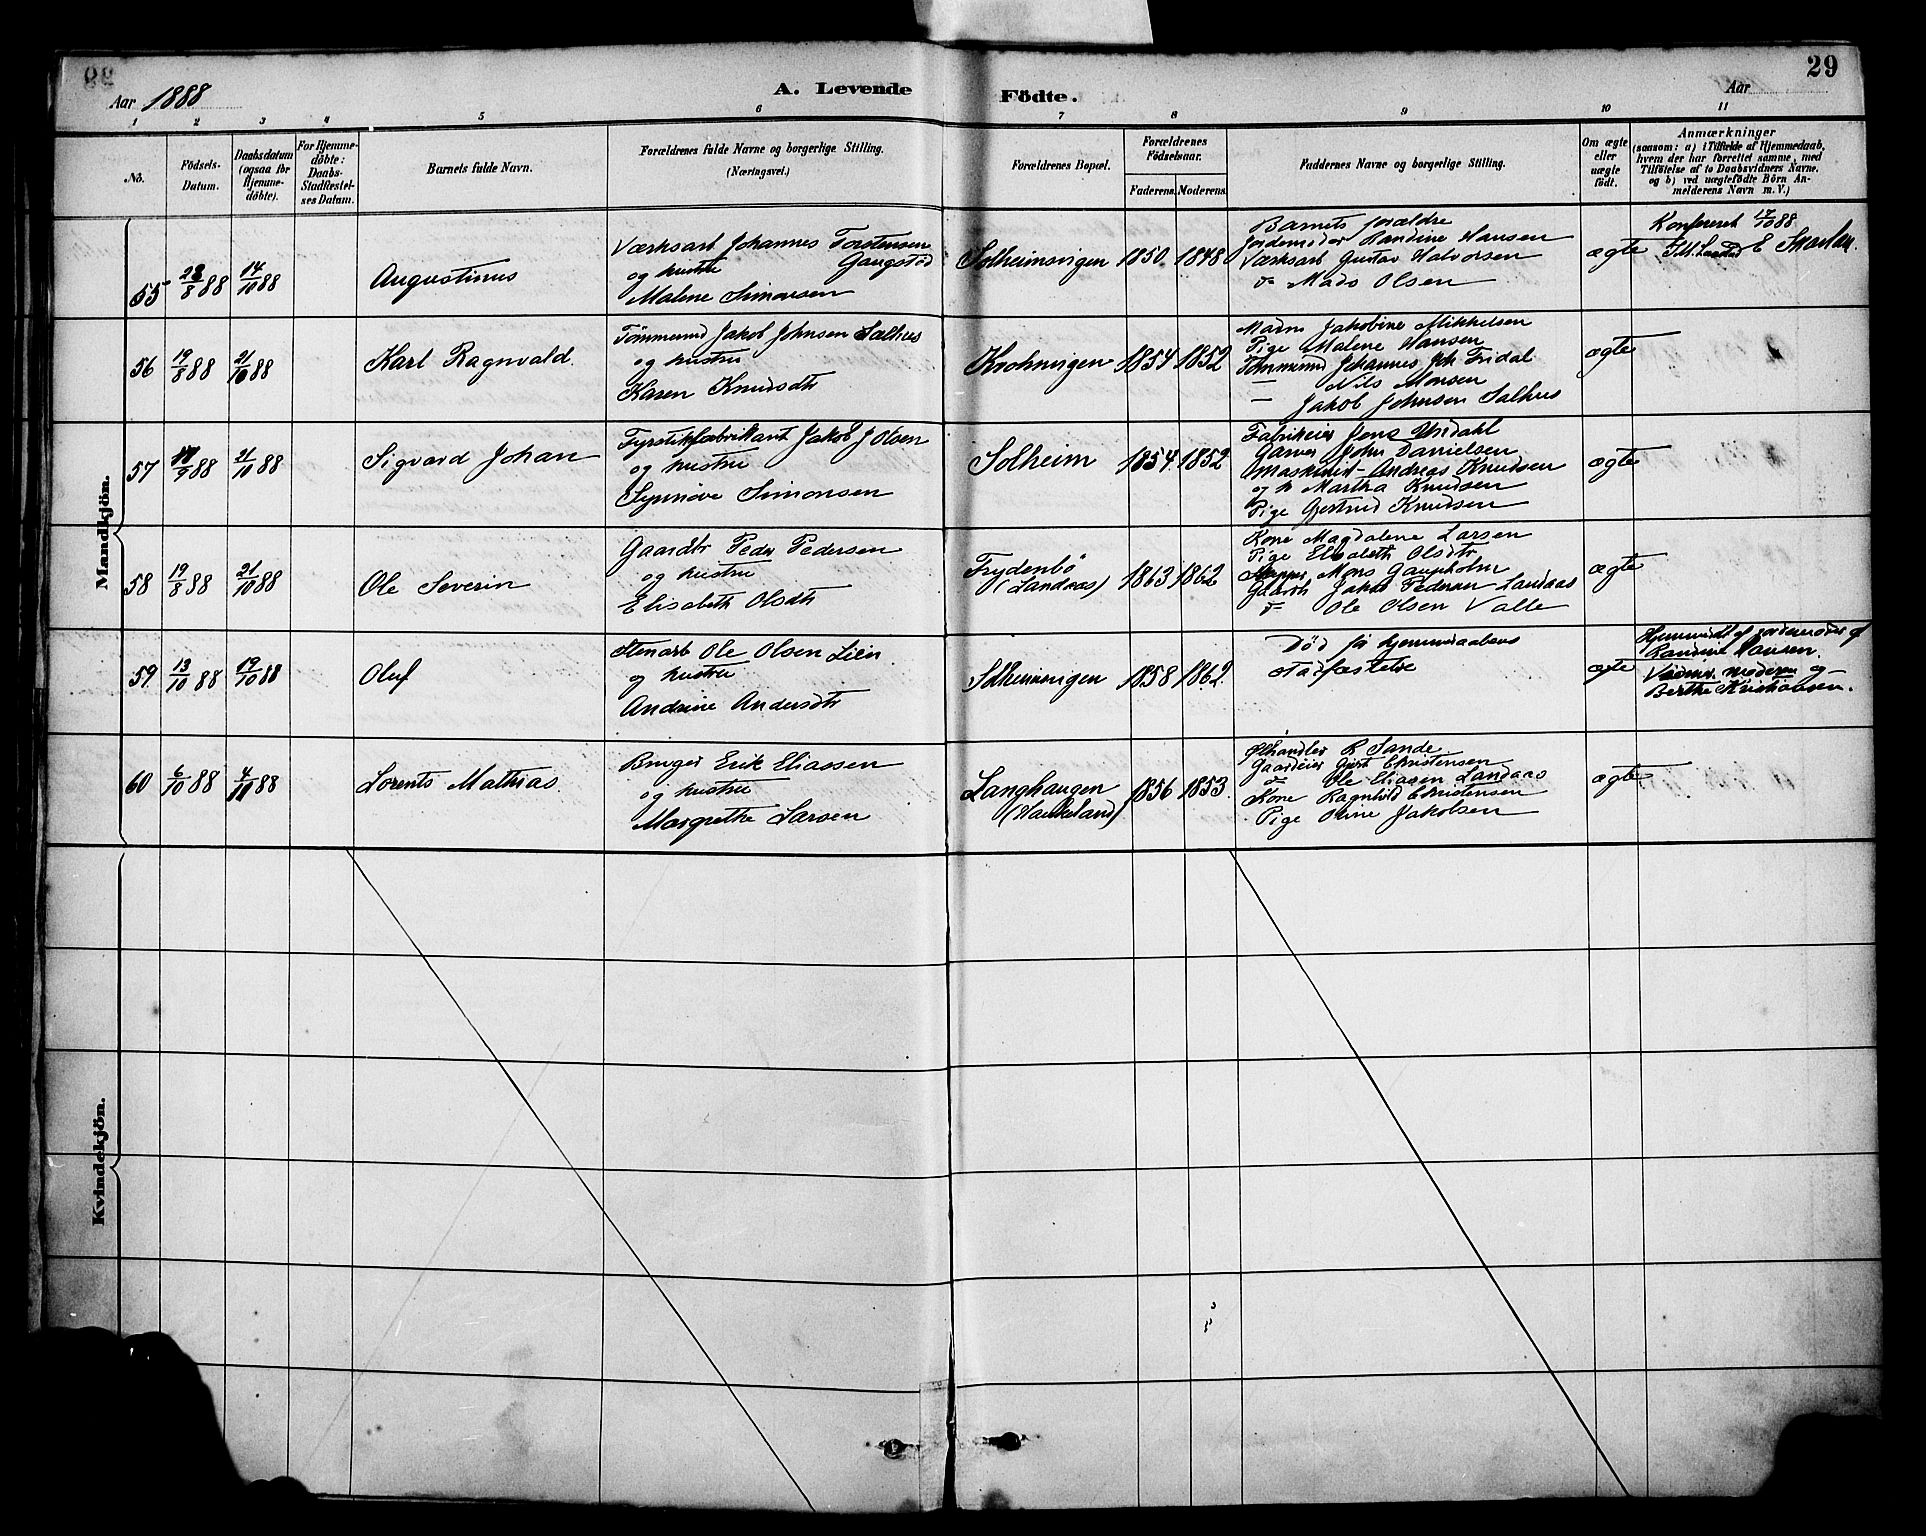 29
Aar 1888
A. Levende Födte.
Aar
1 2 3 4 5 6 7 8 9 10 11
No.
Födsels-
Datum.
Daabsdatum
(ogsaa for
Hjemme-
döbte).
For Hjemme-
döbte:
Daabs-
Stadfæstel-
ses Datum.
Barnets fulde Navn.
Forældrenes fulde Navne og borgerlige Stilling.
(Næringsvei.)
Forældrenes Bopæl.
Forældrenes
Födselsaar.
Faderens. Moderens.
Faddernes Navne og borgerlige Stilling.
Om ægte
eller
uægte
födt.
Anmærkninger
(saasom: a) i Tilfælde af Hjemmedaab,
hvem der har forrettet samme, med
Tilföielse af to Daabsvidners Navne,
og b) ved uægtefödte Börn An-
melderens Navn m. V.)
Mandkjön.
55 28/8 88 14/10 88
Augustinus
Værksarb Johannes Torstensen
Gangstöd
og hustru
Malene Simonsen
Solheimsvigen 1850 1848
Barnets forældre
Jordemoder Randine Hansen
Værksarb Gustav Halvorsen
do Mads Olsen
ægte
Konfereret 17/10 88
56 19/8 88 21/10 88
Karl Ragnvald
Tömmermd Jakob Johnsen Salhus
og hustru
Karen Knudsdtr
Krohnvigen 1854 1852
Madm Jakobine Mikkelsen
Pige Malene Hansen
Tömmermd Johannes Joh
— Nils Monsen
— Jakob Johnsen Salhus
ægte
57 17/9 88 21/10 88
Sigvard Johan
Fyrstikfabrikant Jakob J Olsen
og hustru
Synnöve Simonsen
Solheim 1854 1852
Fabrikeier Jens
Garver John Danielsen
Maskinist Andreas Knudsen
og h Martha Knudsen
Pige Gjertrud Knudsen
ægte
58 19/8 88 21/10 88
Ole Severin
Gaardbr Peder Pedersen
og hustru
Elisabeth Olsdtr
Frydenbö
(Landaas) 1863 1862
Kone Magdalene Larsen
Pige Elisabeth Olsdtr
Mons Gaupholm
Gaardbr Jakob Pedersen Landaas
do Ole Olsen Valle
ægte
59 13/10 88 19/10 88
Oluf
Stenarb Ole Olsen Lien
og hustru
Andrine Andersdtr
Solheimsvigen 1858 1862
Död før hjemmedaabens
stadfæstelse
ægte
Hjemmedöbt af jordemoder
Randine Hansen.
Vidner moderen og
Berthe Kristiansen.
60 6/10 88 4/11 88
Lorents Mathias
Bruger Erik Eliassen
og hustru
Margrethe Larsen
Langhaugen
(Haukeland) 1856 1853
Ølhandler R Sande
Gaardeier Gjert Christensen
do Ole Eliasen Landaas
Kone Ragnhild Christensen
Pige Oline Jakobsen
ægte
Kvindekjön.